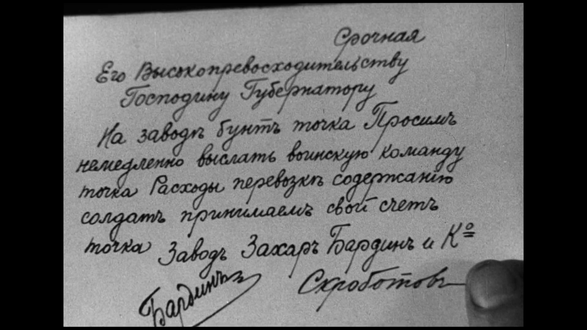 Срочная
Его Высокопревосходительству
Господину Губернатору
На заводѣ бунтъ точка Просимъ
немедленно выслать воинскую команду
точка Расходы перевозкѣ содержанію
солдатъ принимаемъ свой счетъ
точка Заводъ Захаръ Бардинъ и Кº
Бардинъ Скроботовъ